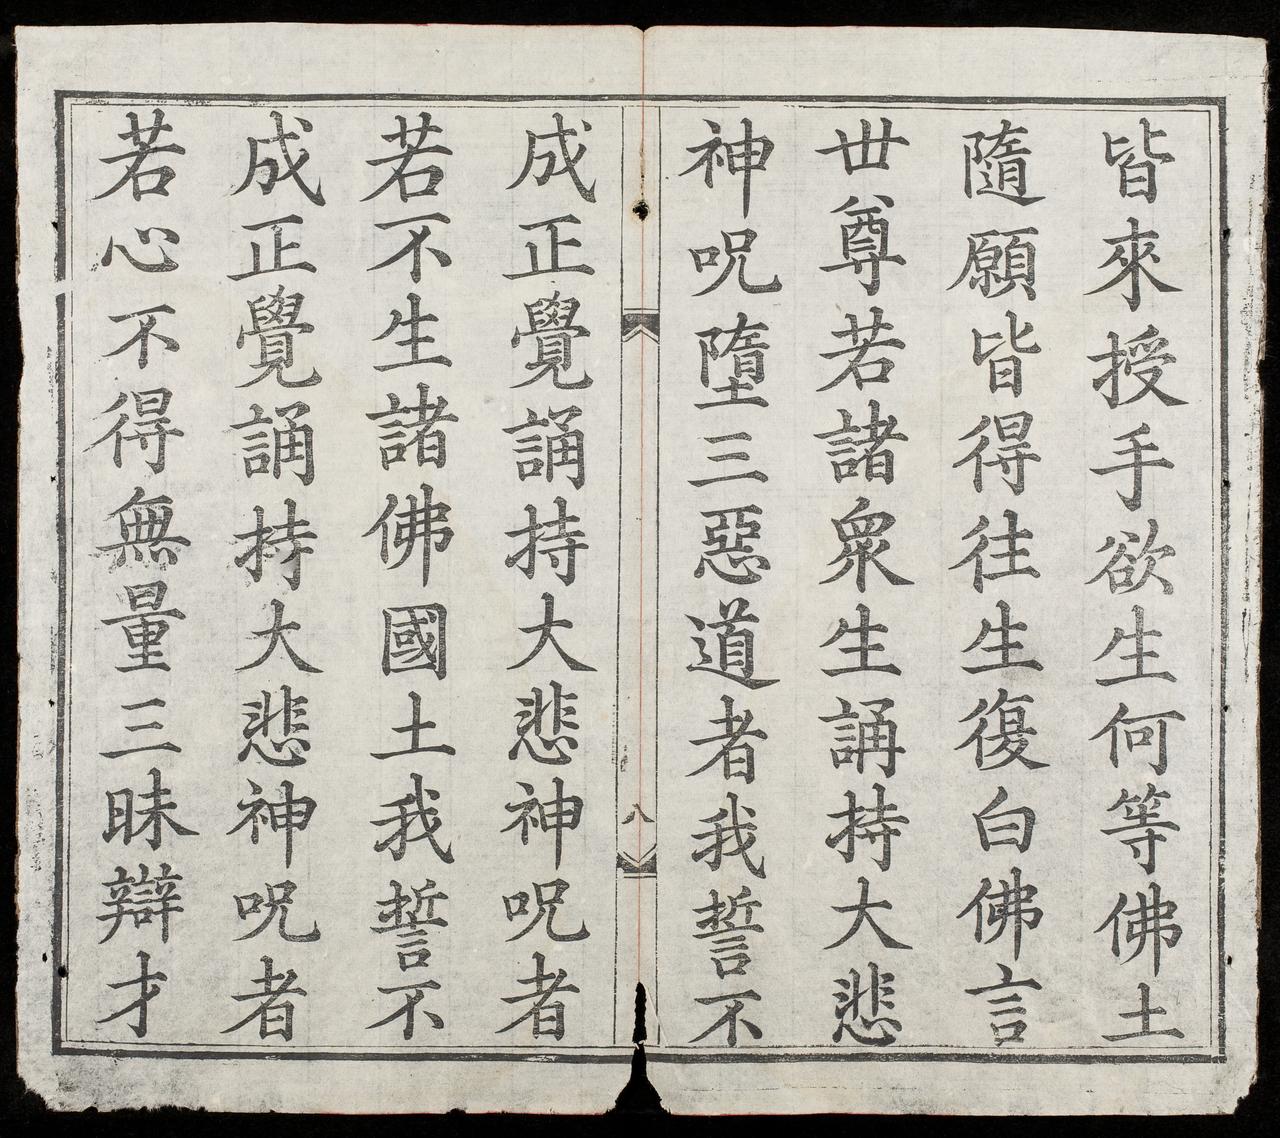 皆來授手欲生何等佛土
隨願皆得往生復白佛言
世尊若諸衆生誦持大悲
神呪墮三惡道者我誓不
八
成正覺誦持大悲神呪者
若不生諸佛國土我誓不
成正覺誦持大悲神呪者
若心不得無量三昧辯才